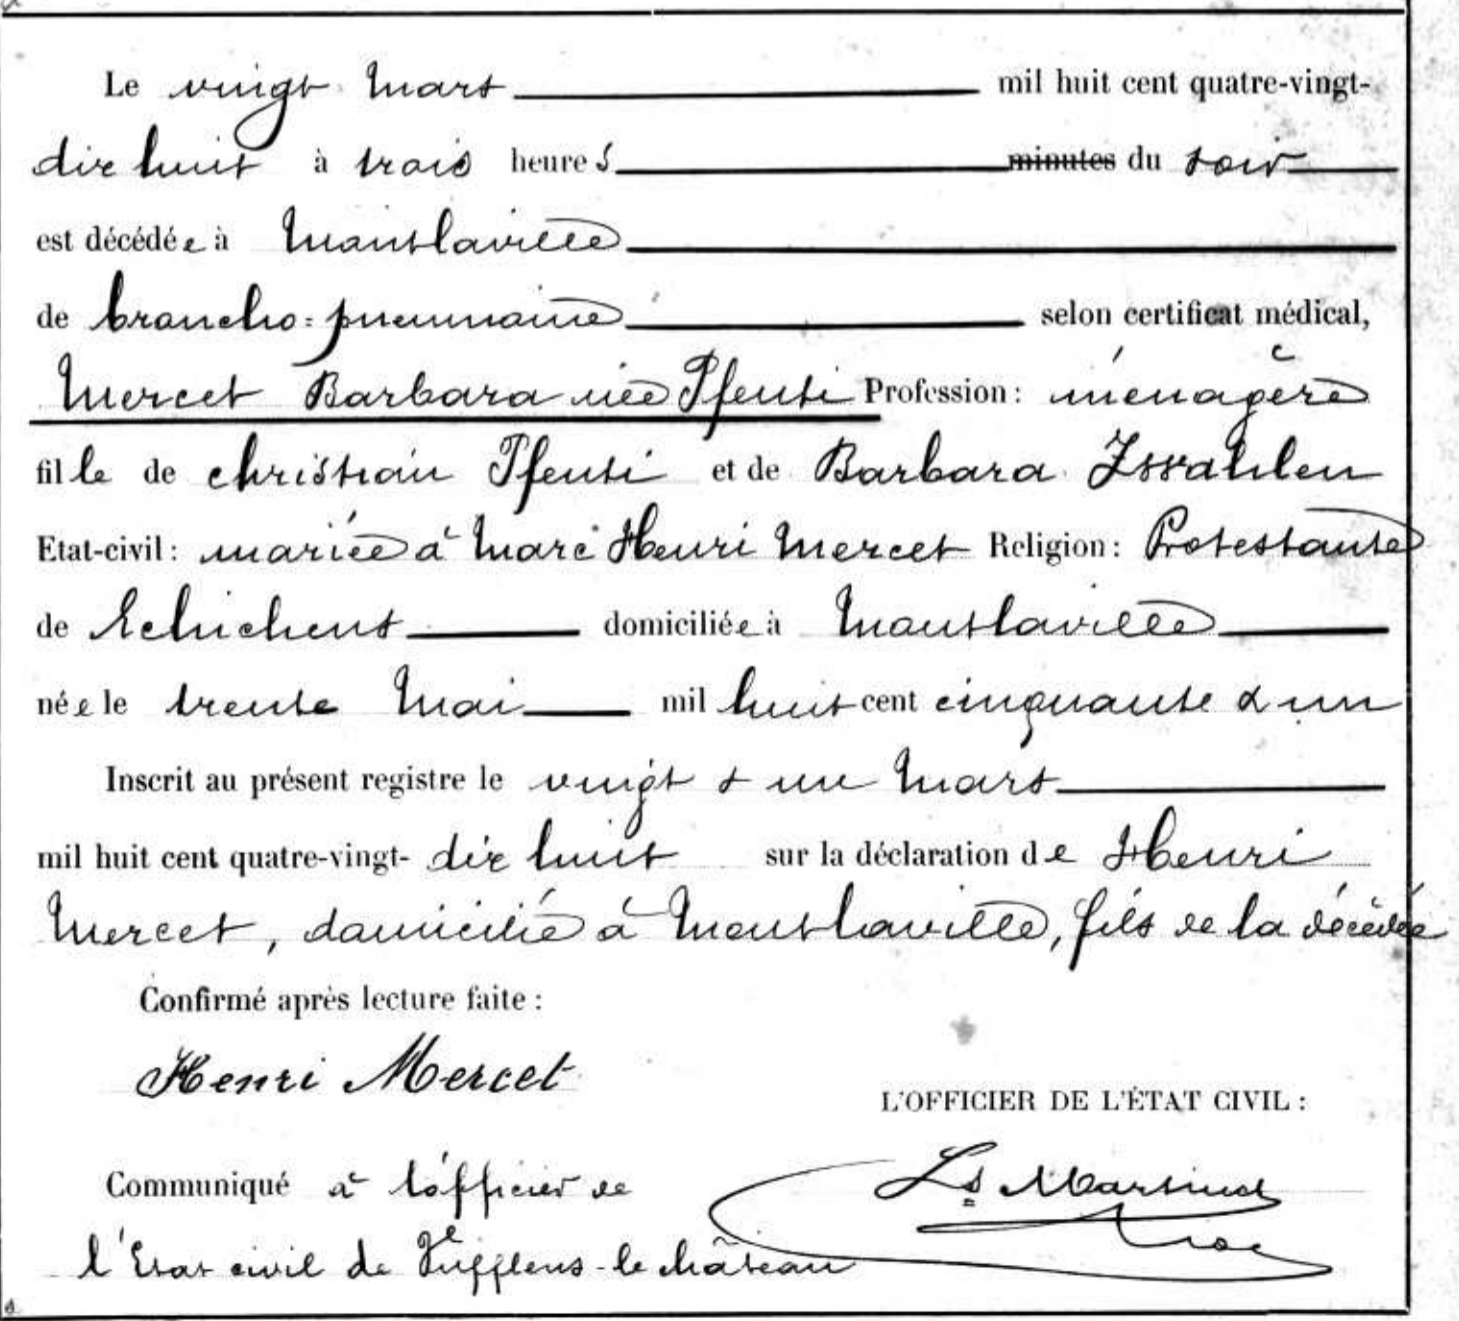 Le vingt Mars mil huit cent quatre-vingt-
dix huit à trois heures minutes du soir
est décédée à Montlaville
de broncho=pneumonie selon certificat médical,
Mercet Barbara née Pfenti Profession : ménagère
fille de Christian Pfenti et de Barbara
Etat-civil : mariée à Marc Henri Mercet Religion : Protestante
de Echichens domiciliée à Montlaville
née le trente Mai mil huit cent cinquante & un
Inscrit au présent registre le vingt & un Mars
mil huit cent quatre-vingt- dix huit sur la déclaration de Henri
Mercet, domicilié à Montlaville, fils de la décédée
Confirmé après lecture faite :
Henri Mercet
L'OFFICIER DE L'ÉTAT CIVIL :
Communiqué à l'officier de
Ls Martinet
l'Etat civil de Vufflens-le château